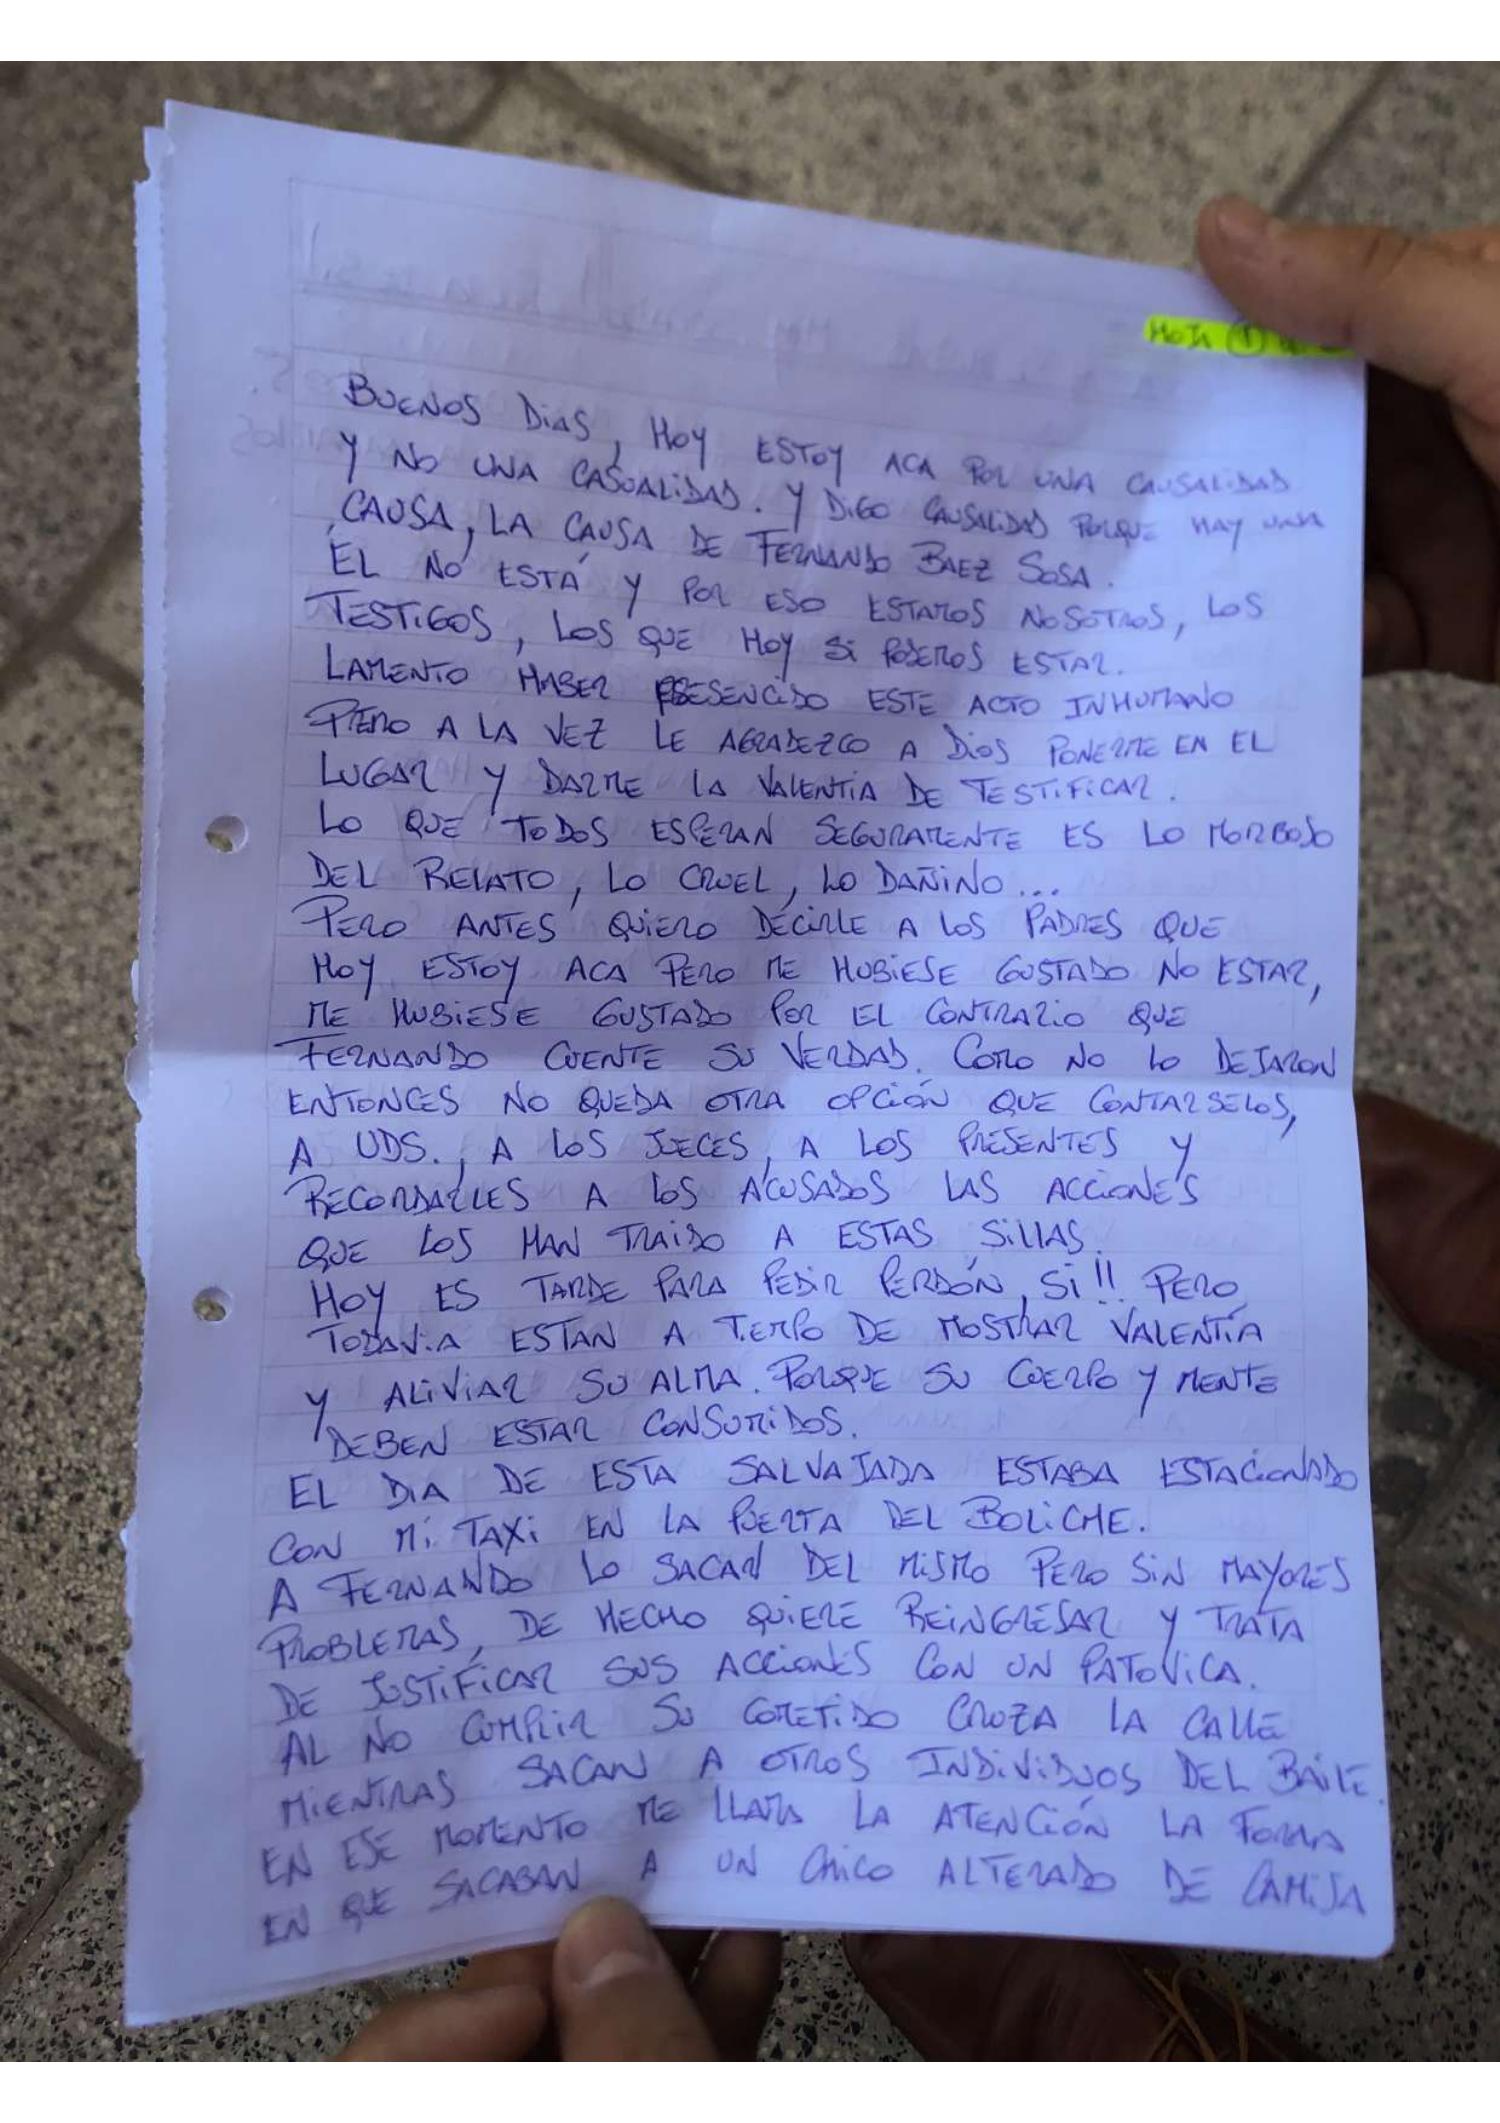 HOJA 1
BUENOS DIAS, HOY ESTOY ACA POR UNA CAUSALIDAD
Y NO UNA CASUALIDAD. Y DIGO CAUSALIDAD PORQUE HAY UNA
CAUSA, LA CAUSA DE FERNANDO BAEZ SOSA.
ÉL NO ESTÁ Y POR ESO ESTAMOS NOSOTROS, LOS
TESTIGOS, LOS QUE HOY SI PODEMOS ESTAR.
LAMENTO HABER PRESENCIDO ESTE ACTO INHUMANO
PERO A LA VEZ LE AGRADEZCO A DIOS PONERME EN EL
LUGAR Y DARME LA VALENTÍA DE TESTIFICAR.
LO QUE TODOS ESPERAN SEGURAMENTE ES LO MORBOSO
DEL RELATO, LO CRUEL, LO DAÑINO...
PERO ANTES QUIERO DECIRLE A LOS PADRES QUE
HOY ESTOY ACA PERO ME HUBIESE GUSTADO NO ESTAR,
ME HUBIESE GUSTADO POR EL CONTRARIO QUE
FERNANDO CUENTE SU VERDAD. COMO NO LO DEJARON
ENTONCES NO QUEDA OTRA OPCIÓN QUE CONTARSELOS,
A UDS., A LOS JUECES, A LOS PRESENTES Y
RECORDARLES A LOS ACUSADOS LAS ACCIONES
QUE LOS HAN TRAIDO A ESTAS SILLAS.
HOY ES TARDE PARA PEDIR PERDÓN, SI!! PERO
TODAVIA ESTAN A TIEMPO DE MOSTRAR VALENTÍA
Y ALIVIAR SU ALMA. PORQUE SU CUERPO Y MENTE
DEBEN ESTAR CONSUMIDOS.
EL DIA DE ESTA SALVAJADA ESTABA ESTACIONADO
CON MI TAXI EN LA PUERTA DEL BOLICHE.
A FERNANDO LO SACAN DEL MISMO PERO SIN MAYORES
PROBLEMAS, DE HECHO QUIERE REINGRESAR Y TRATA
DE JUSTIFICAR SUS ACCIONES CON UN PATOVICA.
AL NO CUMPLIR SU COMETIDO CRUZA LA CALLE
MIENTRAS SACAN A OTROS INDIVIDUOS DEL BAILE.
EN ESE MOMENTO ME LLAMA LA ATENCIÓN LA FORMA
EN QUE SACABAN A UN CHICO ALTERADO DE CAMISA